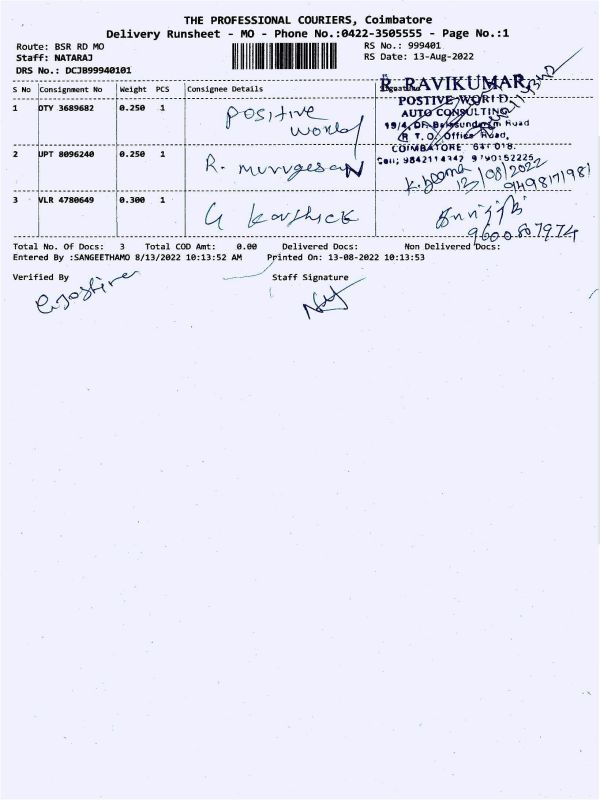 THE PROFESSIONAL COURIERS, Coimbatore
Delivery Runsheet - MO - Phone No.:0422-3505555 - Page No.:1
Route: BSR RD MO
Staff: NATARAJ
DRS No.: DCJB99940101
RS No.: 999401
RS Date: 13-Aug-2022
S No Consignment No Weight PCS Consignee Details Signature
1 DTY 3689682 0.250 1 Positive World
R. RAVIKUMAR
POSTIVE WORLD.
AUTO CONSULTING
19/4, DR. Balasundaram Road
(R.T.O. Office Road,
COIMBATORE 641 018.
Cell; 9842114347 9790152225
2 UPT 8096240 0.250 1 R. murugesaN
13/08/2022
9498171981
3 VLR 4780649 0.300 1 G Karthick
9600807974
Total No. Of Docs: 3 Total COD Amt: 0.00 Delivered Docs: Non Delivered Docs:
Entered By :SANGEETHAMO 8/13/2022 10:13:52 AM Printed On: 13-08-2022 10:13:53
Verified By Staff Signature